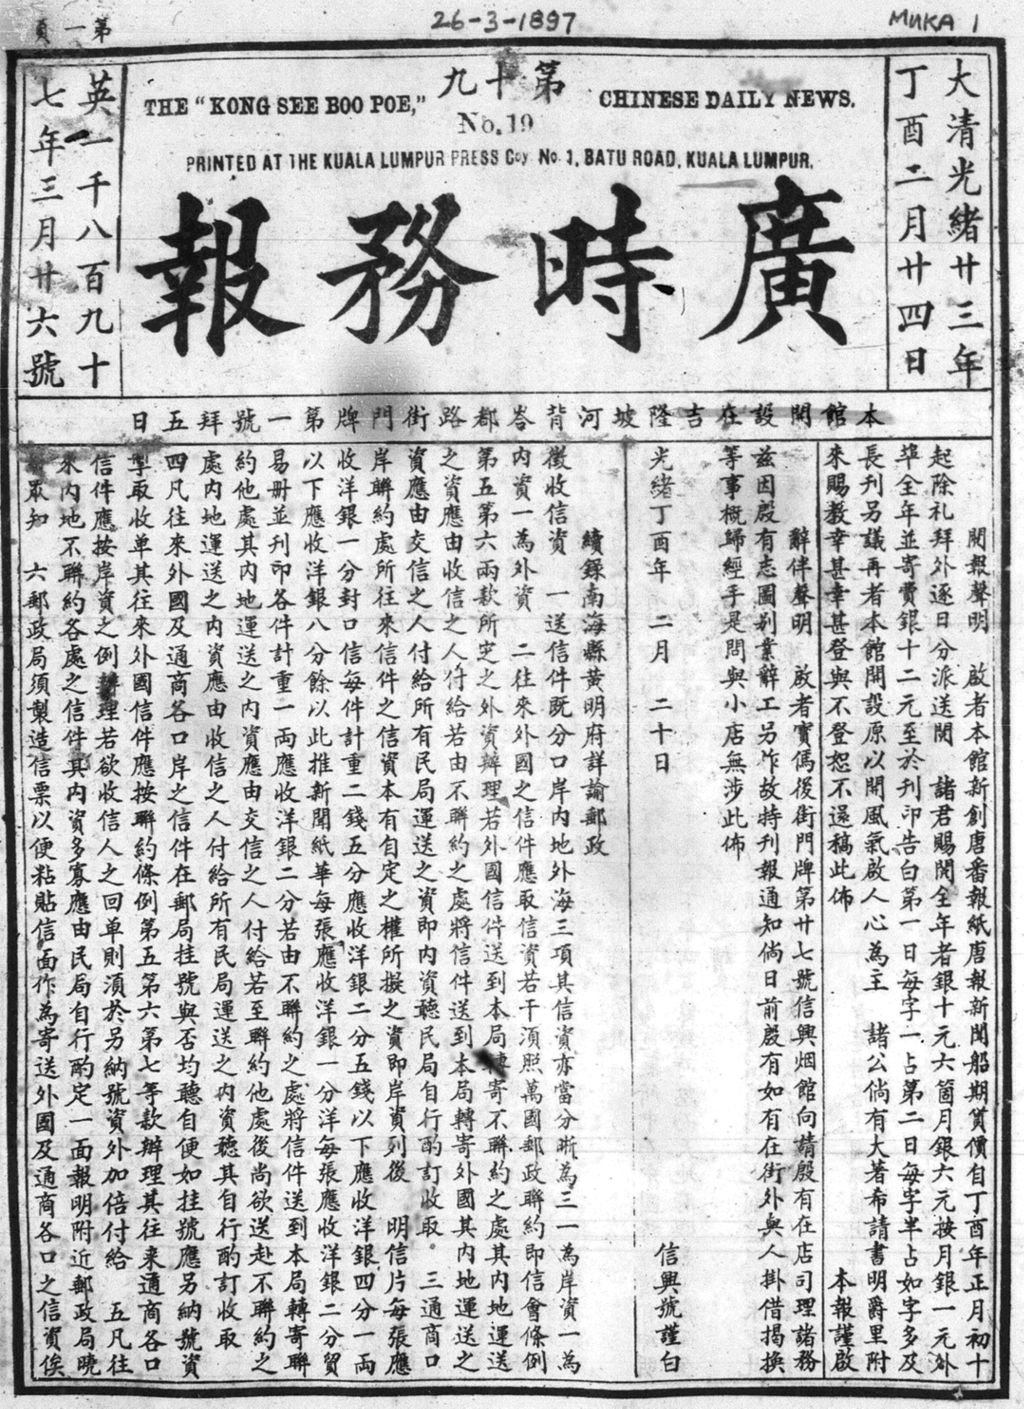 第一頁
26-3-1897
MUKA 1
大清光緒廿三年
丁酉二月廿四日
第十九
THE "KONG SEE BOO POE,"
CHINESE DAILY NEWS.
No. 19
PRINTED AT THE KUALA LUMPUR PRESS Coy No. 1, BATU ROAD, KUALA LUMPUR.
廣時務報
英一千八百九十
七年三月廿六號
本館開設在吉隆坡河背峇都路街門牌第一號拜五日
閱報聲明　啟者本館新創唐番報紙唐報新聞船期貨價自丁酉年正月初十
起除礼拜外逐日分派送閱　諸君賜閱全年者銀十元六箇月銀六元按月銀一元外
埠全年並寄費銀十二元至於刊印告白第一日每字一占第二日每字半占如字多及
長刊另議再者本館開設原以開風氣啟人心為主　諸公倘有大著希請書明爵里附
來賜教幸甚幸甚登與不登恕不還稿此佈　本報謹啟
辭伴聲明　啟者實後街門牌第廿七號信興烟館向請殷有在店司理諸務
茲因殷有志圖别業辭工另作故特刊報通知倘日前殷有如有在街外與人掛借揭換
等事概歸經手是問與小店無涉此佈
光緒丁酉年　二月　二十日　信興號謹白
續錄南海縣黃明府詳諭郵政
徵收信資　一送信件既分口岸內地外海三項其信資亦當分晰為三一為岸資一為
內資一為外資　二往來外國之信件應取信資若干須照萬國郵政聯約即信會條例
第五第六兩款所定之外資辦理若外國信件送到本局轉寄不聯約之處其內地運送
之資應由收信之人付給若由不聯約之處將信件送到本局轉寄外國其內地運送之
資應由交信之人付給所有民局運送之資即內資聽民局自行酌訂收取。　三通商口
岸聯約處所往來信件之信資本有自定之權所擬之資即岸資列後　明信片每張應
收洋銀一分封口信每件計重二錢五分應收洋銀二分五錢以下應收洋銀四分一兩
以下應收洋銀八分餘以此推新聞紙華每張應收洋銀一分洋每張應收洋銀二分貿
易冊並刊印各件計重一兩應收洋銀二分若由不聯約之處將信件送到本局轉寄聯
約他處其內地運送之內資應由交信之人付給若至聯約他處後尚欲送赴不聯約之
處內地運送之內資應由收信之人付給所有民局運送之內資聽其自行酌訂收取
四凡往來外國及通商各口岸之信件在郵局挂號與否均聽自便如挂號應另納號資
掣取收单其往來外國信件應按聯約條例第五第六第七等款辦理其往來通商各口
信件應按岸資之例辦理若欲收信人之回单則須於另納號資外加倍付給　五凡往
來內地不聯約各處之信件其內資多寡應由民局自行酌定一面報明附近郵政局曉
眾知　六郵政局須製造信票以便粘貼信面作為寄送外國及通商各口之信資俟